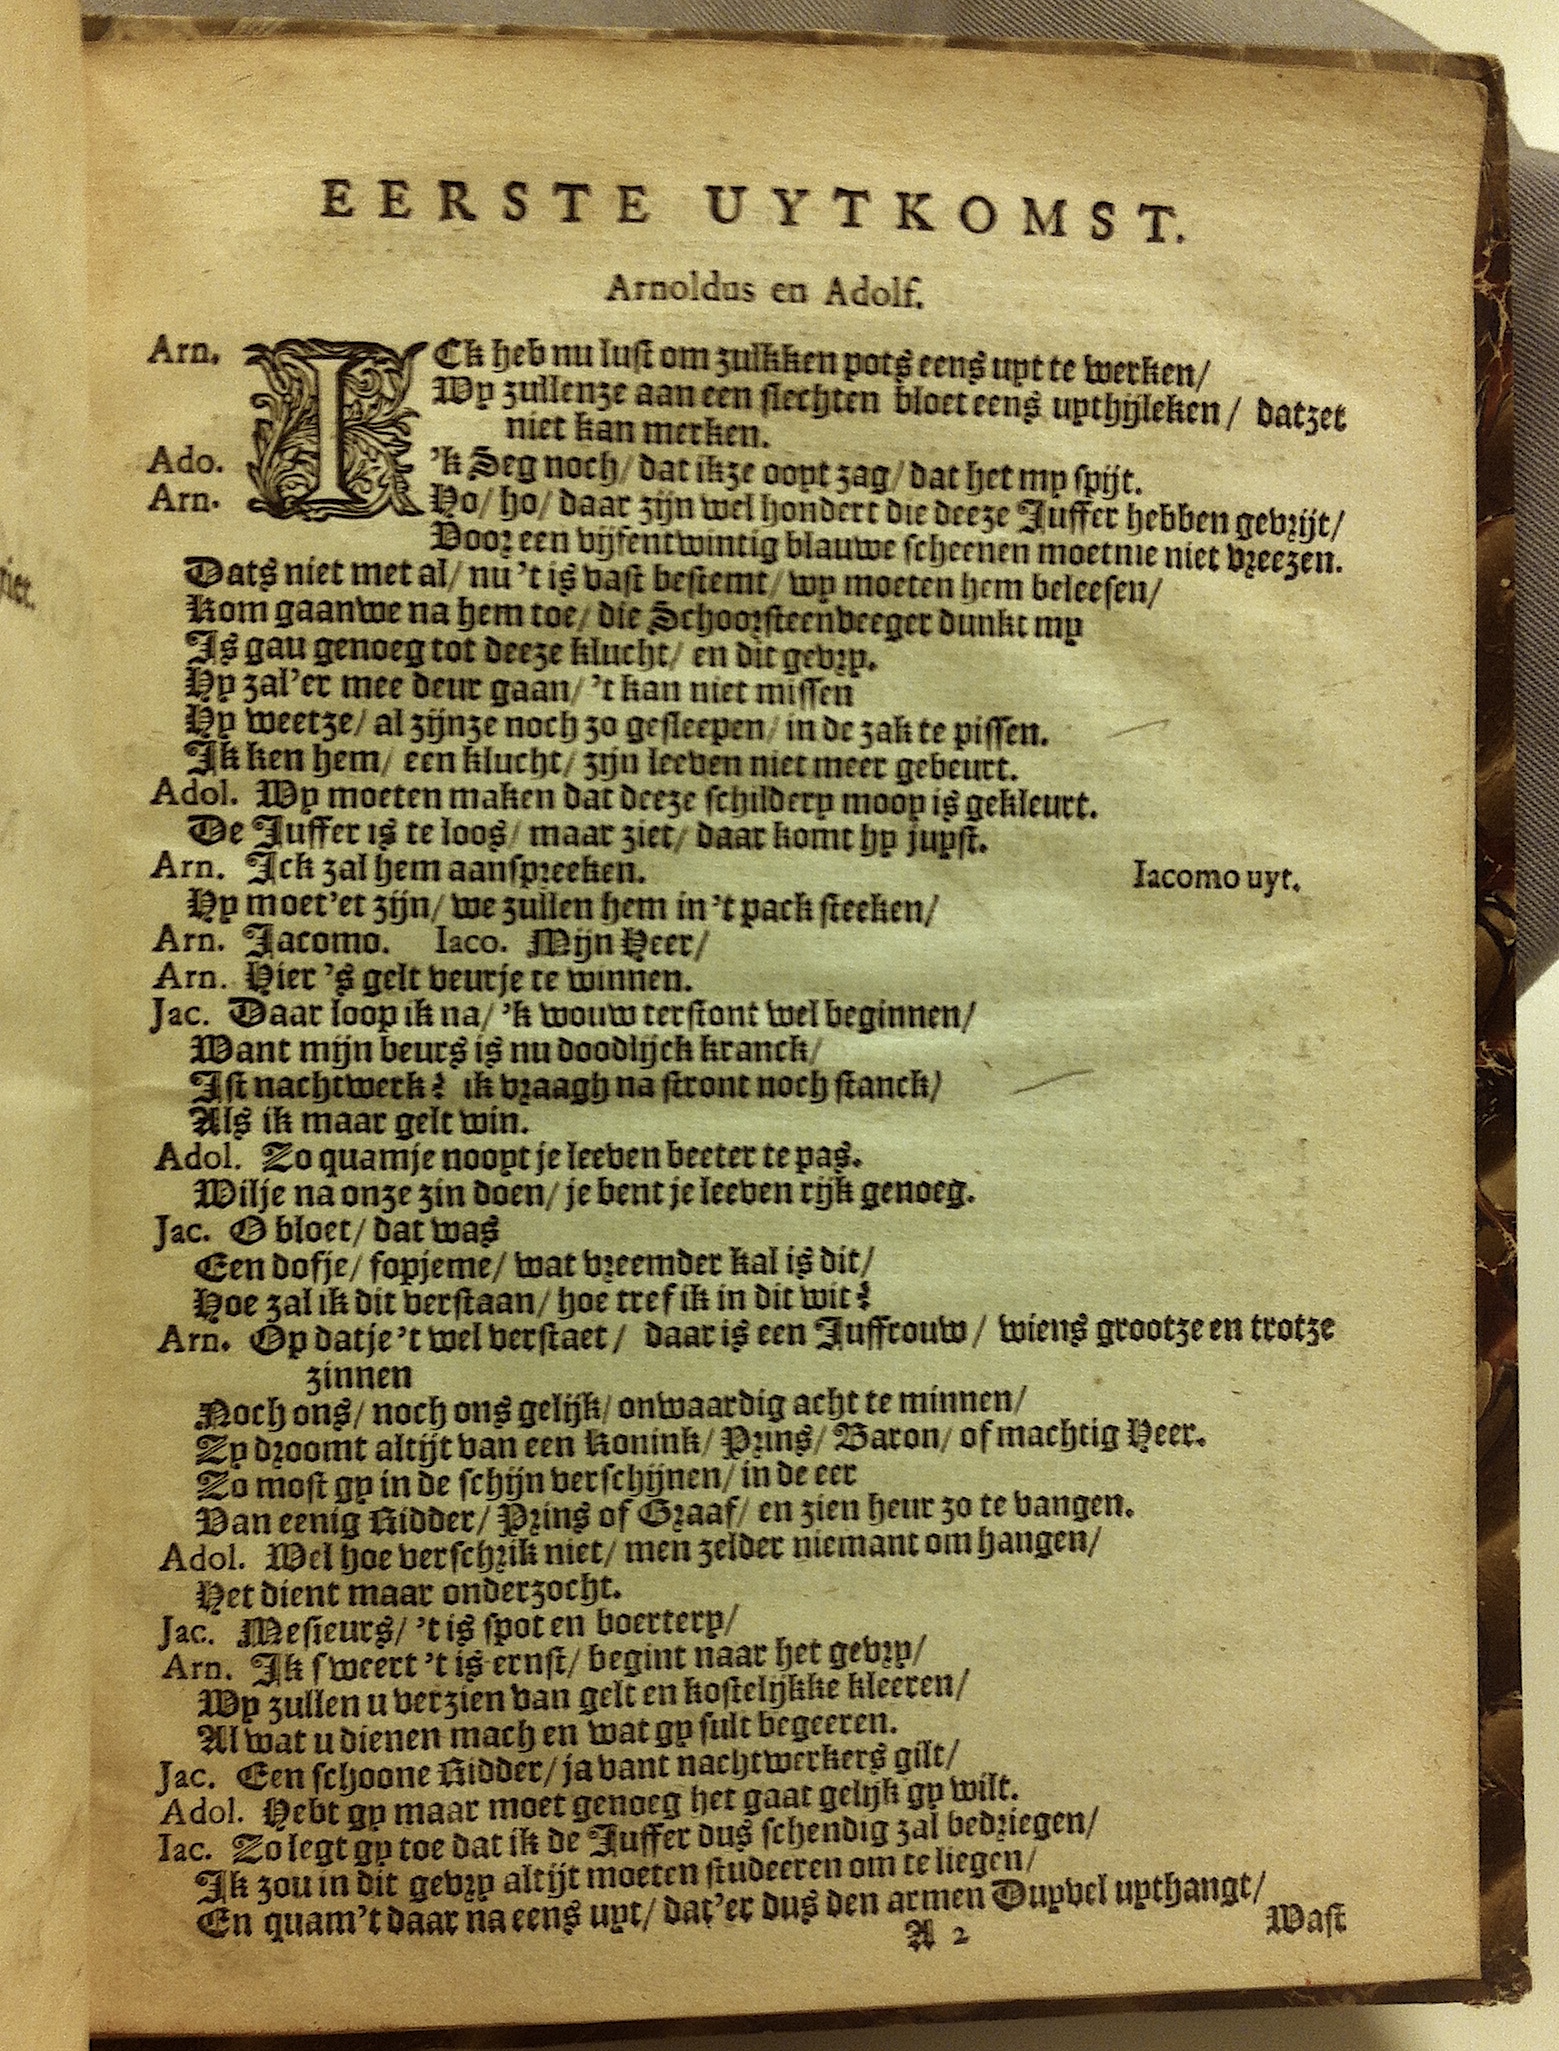 EERSTE UYTKOMST.
Arnoldus en Adolf.
Arn. ICk heb nu lust om zulkken pots eens uyt te werken/
Wy zullenze aan een slechten bloet eens uythijleken/ datzet
niet kan merken.
Ado. 'k Seg noch/ dat ikze ooyt zag/ dat het my spijt.
Arn. Ho/ ho/ daar zijn wel hondert die deeze Juffer hebben gevrijt/
Door een vijfentwintig blauwe scheenen moetme niet vreezen.
Dats niet met al/ nu 't is vast bestemt/ wy moeten hem beleesen/
Kom gaanwe na hem toe/ die Schoorsteenveeger dunkt my
Is gau genoeg tot deeze klucht/ en dit gevry.
Hy zal'er mee deur gaan/ 't kan niet missen
Hy weetze/ al zijnze noch zo gesleepen/ in de zak te pissen.
Ik ken hem/ een klucht/ zijn leeven niet meer gebeurt.
Adol. Wy moeten maken dat deeze schildery mooy is gekleurt.
De Juffer is te loos/ maar ziet/ daar komt hy juyst.
Arn. Ick zal hem aanspreeken. Iacomo uyt.
Hy moet'et zijn/ we zullen hem in 't pack steeken/
Arn. Jacomo. Iaco. Mijn Heer/
Arn. Hier 's gelt veurje te winnen.
Jac. Daar loop ik na/ 'k wouw terstont wel beginnen/
Want mijn beurs is nu doodlijck kranck/
Ist nachtwerk? ik vraagh na stront noch stanck/
Als ik maar gelt win.
Adol. Zo quamje nooyt je leeven beeter te pas.
Wilje na onze zin doen/ je bent je leeven rijk genoeg.
Jac. O bloet/ dat was
Een dofje/ fopjeme/ wat vreemder kal is dit/
Hoe zal ik dit verstaan/ hoe tref ik in dit wit?
Arn. Op datje 't wel verstaet/ daar is een Juffrouw/ wiens grootze en trotze
zinnen
Noch ons/ noch ons gelijk/ onwaardig acht te minnen/
Zy droomt altijt van een Konink/ Prins/ Baron/ of machtig Heer.
Zo most gy in de schijn verschijnen/ in de eer
Van eenig Ridder/ Prins of Graaf/ en zien heur zo te vangen.
Adol. Wel hoe verschrik niet/ men zelder niemant om hangen/
Het dient maar onderzocht.
Jac. Mesieurs/ 't is spot en boertery/
Arn. Ik sweert 't is ernst/ begint naar het gevry/
Wy zullen u verzien van gelt en kostelijkke kleeren/
Al wat u dienen mach en wat gy sult begeeren.
Jac. Een schoone Ridder/ ja vant nachtwerkers gilt/
Adol. Hebt gy maar moet genoeg het gaat gelijk gy wilt.
Iac. Zo legt gy toe dat ik de Juffer dus schendig zal bedriegen/
Ik zou in dit gevry altijt moeten studeeren om te liegen/
En quam't daar na eens uyt/ dat'er dus den armen Duyvel uythangt/
A 2 Wast